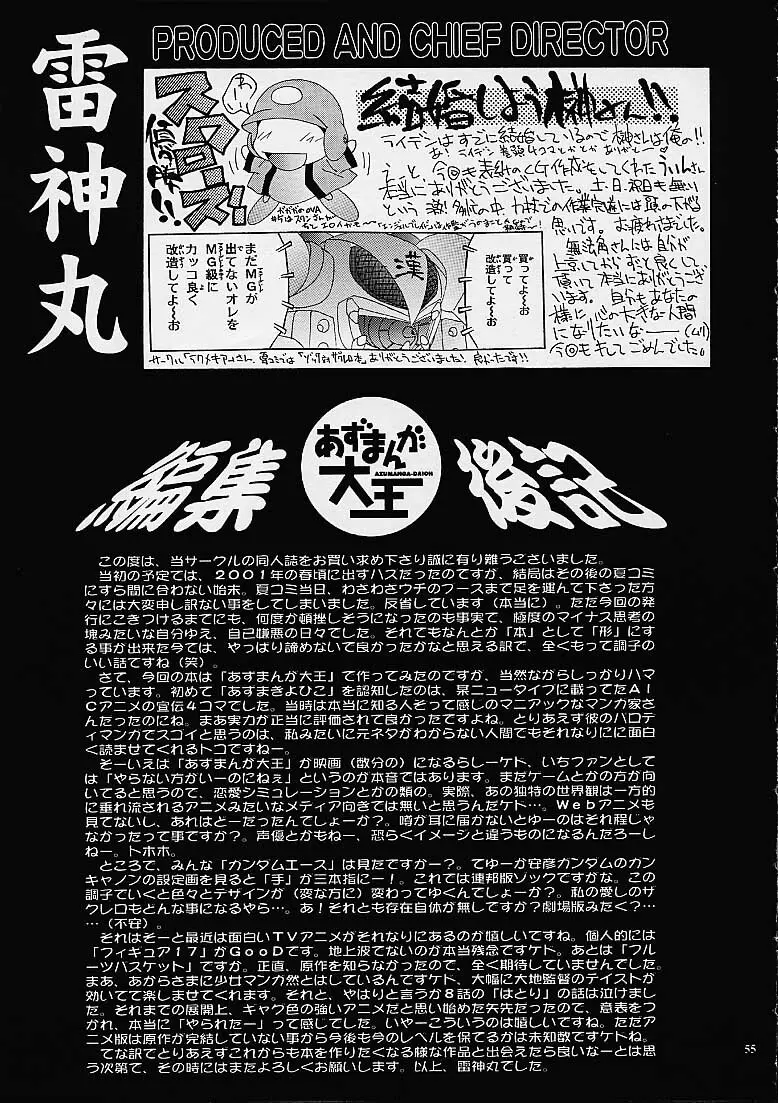 雷神丸
PRODUCED AND CHIEF DIRECTOR
結婚しよう榊さん!!
ライデンはすでに結婚しているので榊さんは俺の!!
えっと、今回も表紙のCG作業をしてくれたういんさん
本当にありがとうございました。土・日・祝日も無い
思いです。お疲れさまでした。
無法角さんには自分が
頂いて本当にありがとうござ
います。自分もあなたの
様に、心の大きな人間
になりたいなー(ムリ)
今回もキしてごめんでした。
買ってよ〜お
買って
よ〜お
漢
まだMGが
出てないオレを
MG級に
カッコ良く
改造してよ〜お
編集
あずまんが
AZUMANGA-DAIOH
大王
後記
この度は、当サークルの同人誌をお買い求め下さり誠に有り難うございました。
当初の予定では、2001年の春頃に出すハズだったのですが、結局はその後の夏コミ
にすら間に合わない始末。夏コミ当日、わざわざウチのブースまで足を運んで下さった方
々には大変申し訳ない事をしてしまいました。反省しています(本当に)。ただ今回の発
行にこぎつけるまでにも、何度か頓挫しそうになったのも事実で、極度のマイナス思考の
塊みたいな自分ゆえ、自己嫌悪の日々でした。それでもなんとか「本」として「形」にす
る事が出来た今では、やっぱり諦めないで良かったかなと思える訳で、全くもって調子の
いい話ですね(笑)。
さて、今回の本は「あずまんが大王」で作ってみたのですが、当然ながらしっかりハマ
っています。初めて「あずまきよひこ」を認知したのは、某ニュータイプに載ってたAI
Cアニメの宣伝4コマでした。当時は本当に知る人ぞって感じのマニアックなマンガ家さ
んだったのにね。まあ実力が正当に評価されて良かったですよね。とりあえず彼のパロデ
ィマンガでスゴイと思うのは、私みたいに元ネタがわからない人間でもそれなりにに面白
く読ませてくれるトコですねー。
そーいえば「あずまんが大王」が映画(数分の)になるらしーケド、いちファンとして
は「やらない方がいーのにねぇ」というのが本音ではあります。まだゲームとかの方が向
いてると思うので、恋愛シミュレーションとかの類の。実際、あの独特の世界観は一方的
に垂れ流されるアニメみたいなメディア向きでは無いと思うんだケド…。Webアニメも
見てないし、あれはどーだったんでしょーか?。噂が耳に届かないとゆーのはそれ程じゃ
なかったって事ですか?。声優とかもねー、恐らくイメージと違うものになるんだろーし
ねー。トホホ。
ところで、みんな「ガンダムエース」は見たですかー?。てゆーか安彦ガンダムのガン
キャノンの設定画を見ると「手」が三本指にー!。これでは連邦版ゾックですがな。この
調子でいくと色々とデザインが(変な方に)変わってゆくんでしょーか?。私の愛しのザ
クレロもどんな事になるやら…。あ!それとも存在自体が無しですか?劇場版みたく?…
…(不安)。
それはそーと最近は面白いTVアニメがそれなりにあるのが嬉しいですね。個人的には
「フィギュア17」がGooDです。地上波でないのが本当残念ですケド。あとは「フル
ーツバスケット」ですか。正直、原作を知らなかったので、全く期待していませんでした。
まあ、あからさまに少女マンガ然とはしているんですケド、大幅に大地監督のテイストが
効いてて楽しませてくれます。それと、やはりと言うか8話の「はとり」の話は泣けまし
た。それまでの展開上、ギャグ色の強いアニメだと思い始めた矢先だったので、意表をつ
かれ、本当に「やられたー」って感じでした。いやーこういうのは嬉しいですね。ただア
ニメ版は原作が完結していない事から今後も今のレベルを保てるかは未知数ですケドね。
てな訳でとりあえずこれからも本を作りたくなる様な作品と出会えたら良いなーとは思
う次第で、その時にはまたよろしくお願いします。以上、雷神丸でした。
55